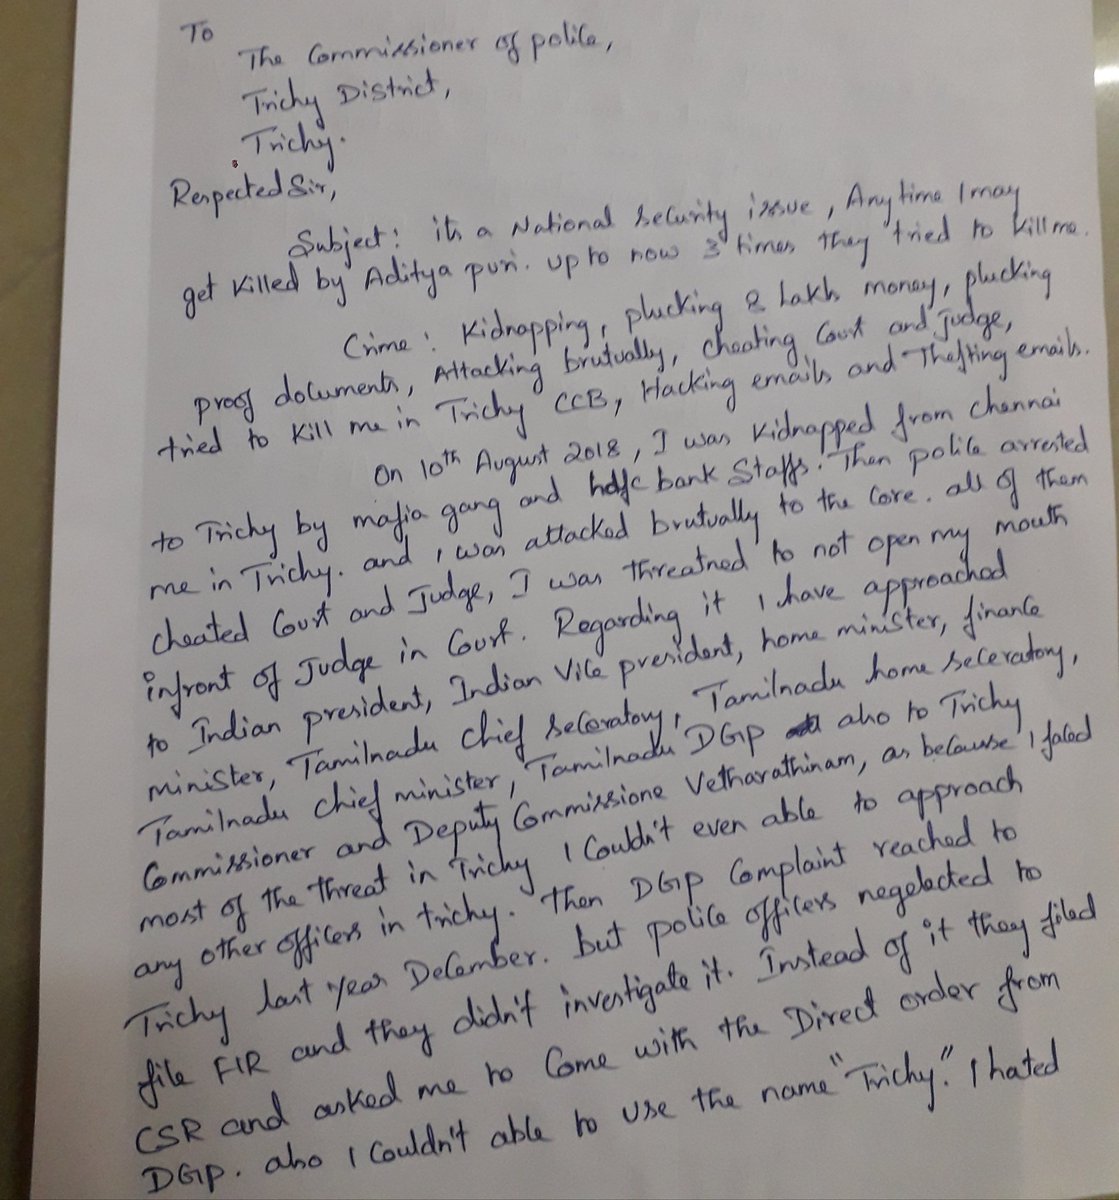 To
The Commissioner of police,
Trichy District,
Trichy.
Respected Sir,
Subject: its a National Security issue, Any time I may
get killed by Aditya puri. up to now 3 times they tried to kill me.
Crime: Kidnapping, plucking 2 Lakh money, plucking
proof documents, Attacking brutually, cheating Court and judge,
tried to kill me in Trichy CCB, Hacking emails and Thefting emails.
On 10th August 2018, I was kidnapped from Chennai
to Trichy by mafia gang and hdfc bank Staffs. Then police arrested
me in Trichy. and I was attacked brutually to the Core. all of them
cheated Court and Judge, I was threatned to not open my mouth
infront of Judge in Court. Regarding it I have approached
to Indian president, Indian Vice president, home minister, finance
minister, Tamilnadu chief seceratory, Tamilnadu home seceratory,
Tamilnadu chief minister, Tamilnadu DGP also to Trichy
Commissioner and Deputy Commissione Vetharathinam, as because I faced
most of the threat in Trichy I Couldn't even able to approach
any other officers in trichy. Then DGP Complaint reached to
Trichy last year December. but police officers negelected to
file FIR and they didn't investigate it. Instead of it they filed
CSR and asked me to Come with the Direct order from
DGP. also I Couldn't able to use the name "Trichy." I hated